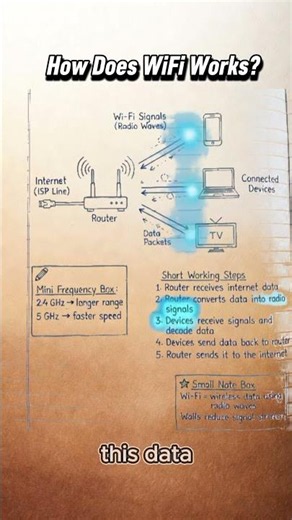 How Does WiFi Works?
Wi-Fi Signals
(Radio Waves)
Internet
(ISP Line)
Router
Connected
Devices
Data
Packets
TV
Mini Frequency Box:
2.4 GHz → longer range
5 GHz → faster speed
Short Working Steps
1. Router receives internet data
2. Router converts data into radio
signals
3. Devices receive signals and
decode data
4. Devices send data back to router
5. Router sends it to the internet
Small Note Box
Wi-Fi = wireless data using
radio waves
Walls reduce signal
this data